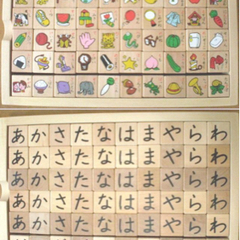 あかさたなはまやらわ
あかさたなはまやらわ
あかさたなはまやらわ
あかさたなはまやらわ
あかさたなはまやらわ